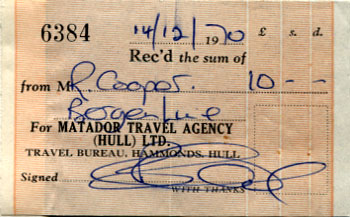 6384 14/12/1970 £ s. d.
Rec'd the sum of
from Mr. R Cooper. 10 - -
Bergen Line
For MATADOR TRAVEL AGENCY
(HULL) LTD.
TRAVEL BUREAU, HAMMONDS, HULL
Signed
WITH THANKS